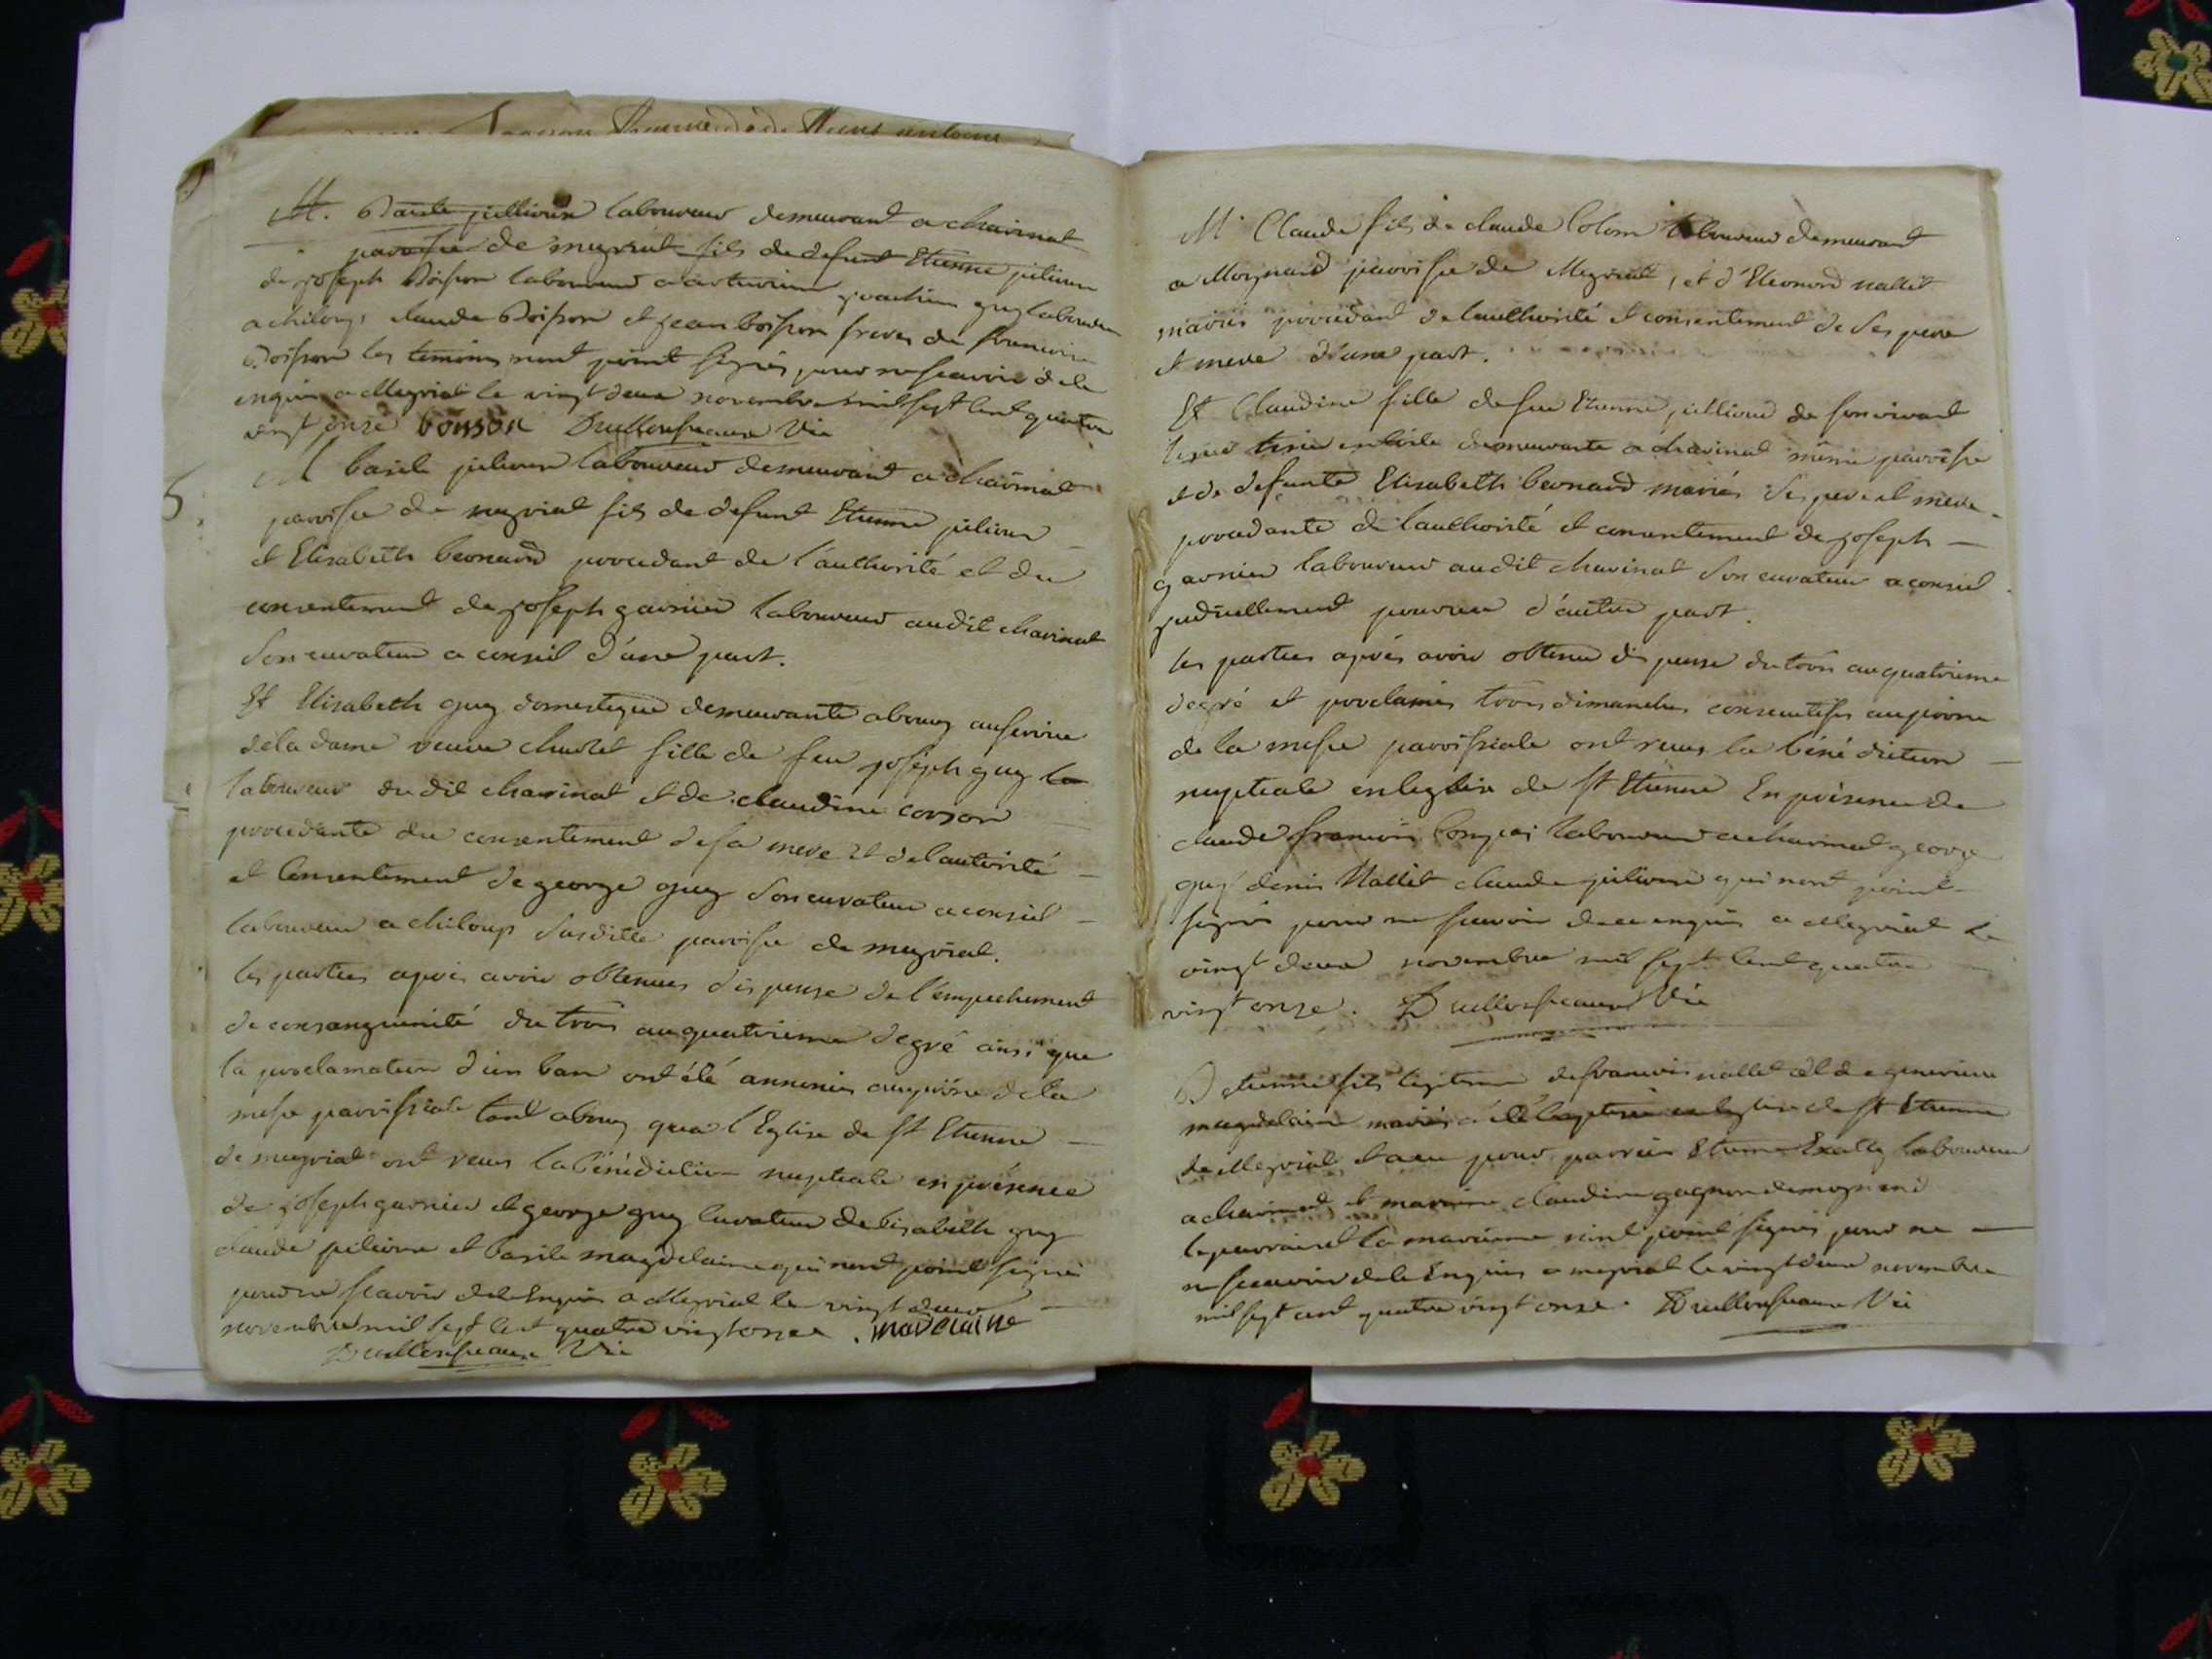 M. Basile jullieron laboureur demeurant a charinat
paroisse de meyriat fils de defunt Etienne julieron
de joseph Boisson laboureur a arturieux joachim guy laboureur
a chiloup, claude Boisson et jean boisson freres de francoise
Boisson les temoins nont point signés pour ne scavoir de ce
enquis a Meyriat le vingt deux novembre mil sept cent quatre
vingt onze boisson Vic
M basile julieron laboureur demeurant a charinat
parroisse de meyriat fils de defunt Etienne julieron
et Elisabeth bernard procedant de l'authorité et du
consentement de joseph garnier laboureur audit charinat
Son curateur a conseil d'une part.
Et Elisabeth guy domestique demeurante a bourg au service
de la dame veuve fille de feu joseph guy la
laboureur du dit charinat et de claudine corson
procedante du consentement de sa mere et de l'autorité
et consentement de george guy son curateur a conseil
laboureur a chiloup susditte parroisse de meyriat.
les parties apres avoir obtenues dispense de l'empechement
de consanguinité du trois au quatrieme degré ainsi que
la proclamation d'un ban ont été annoncés au prône de la
messe parroissiale tant a bourg qua l'Eglise de St Etienne
de meyriat ont reçus la bénédiction nuptiale en présence
de joseph garnier et george guy curateur delisabeth guy
claude julieron et basile magdelaine qui nont point signé
pour ne scavoir de ce Enquis a Meyriat le vingt deux
novembre mil sept cent quatre vingt onze. madelaine
Vic
M. Claude fils de claude Colom laboureur demeurant
a Moignard parroisse de Meyriat, et d'Eleonord nallet
mariés procedant de lauthorité et consentement de ses pere
et mere d'une part.
Et Claudine fille de feu Etienne jullieron de son vivant
demeurante a charinat même parroisse
et de defunte Elisabeth bernard mariés ses pere et mere
procedante de l'authorité et consentement de joseph
garnier laboureur audit charinat son curateur a conseil
judiciellement pourvu d'autre part.
les parties après avoir obtenu dispense du trois au quatrieme
degré et proclamés trois dimanches consecutifs au prone
de la messe parroissiale ont reçus la bénédiction
nuptiale en leglise de St Etienne En présence de
claude francois laboureur a charinat george
guy denis Nallet claude julieron qui nont point
signés pour ne scavoir de ce enquis a Meyriat le
vingt deux novembre mil sept cent quatre
vingt onze. Vic
B Etienne fils legitime de francois nallet et de genevieve
magdelaine mariés a été baptisé en leglise de St Etienne
de Meyriat et a eu pour parrein Etienne laboureur
a charinat et marraine claudine gagnon de mognard
le parrain et la marraine nont point signés pour ne
ne scavoir de ce Enquis a meyriat le vingt deux novembre
mil sept cent quatre vingt onze. Vic